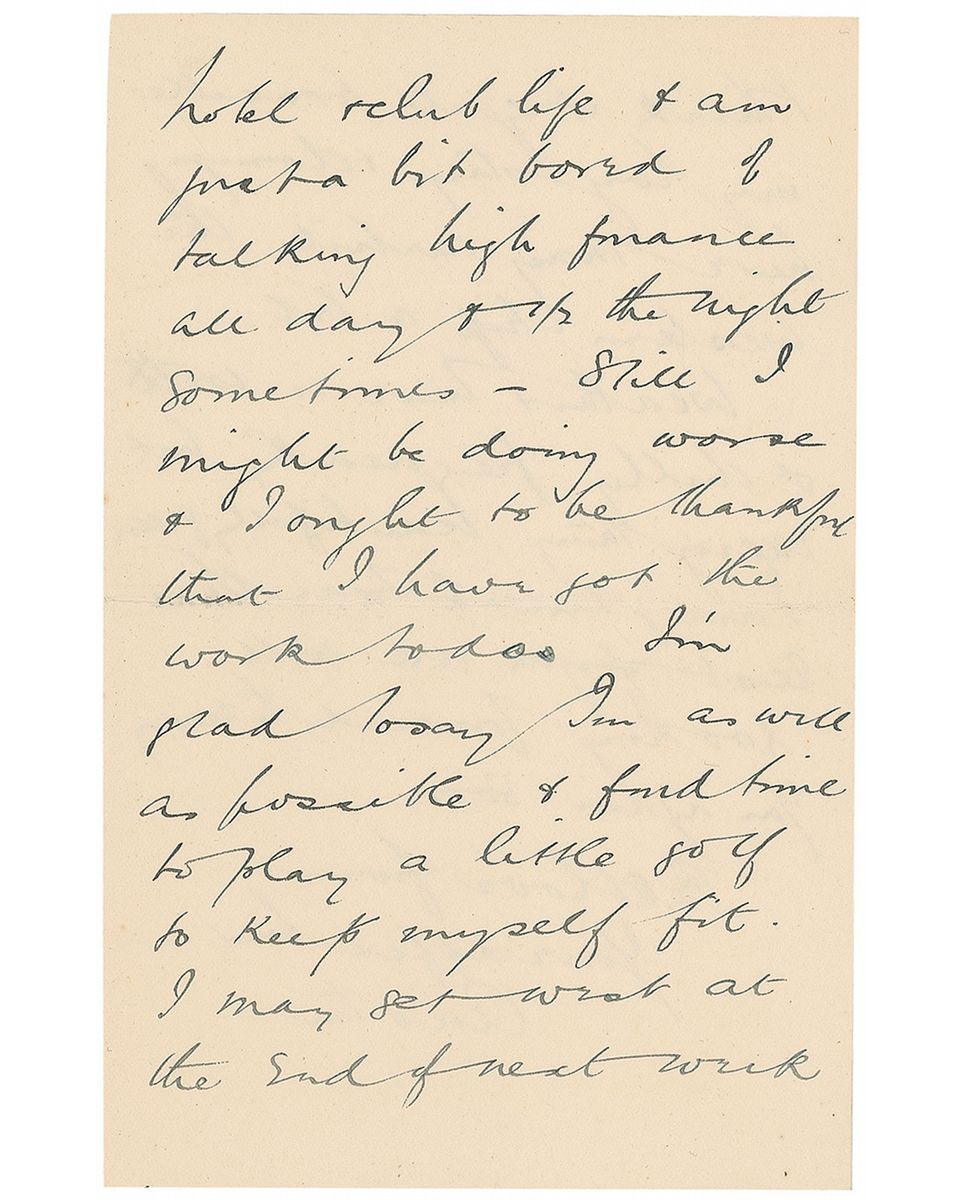 hotel & club life & am
just a bit bored of
talking high finance
all day & 1/2 the night
sometimes – Still I
might be doing worse
& I ought to be thankful
that I have got the
work to do I'm
glad to say I'm as well
as possible & find time
to play a little golf
to keep myself fit.
I may get west at
the End of next week